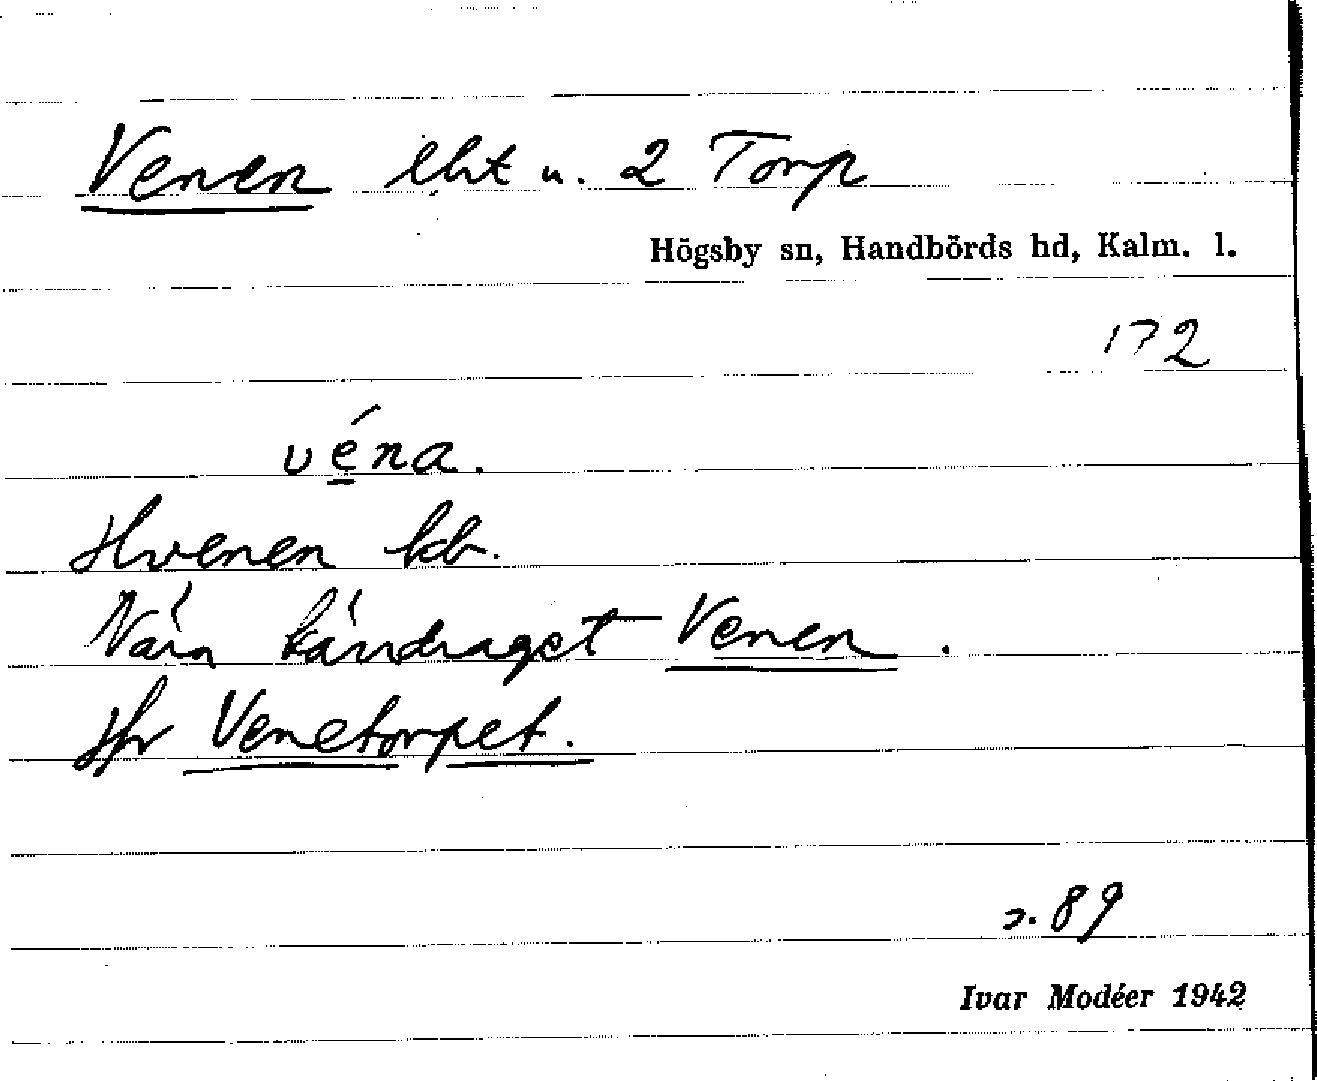 Venen lht u. 2 Torp
Högsby sn, Handbörds hd, Kalm. l.
172
véna.
Hvenen kb.
Nära kärrdraget Venen.
Jfr Venetorpet.
s. 89
Ivar Modéer 1942